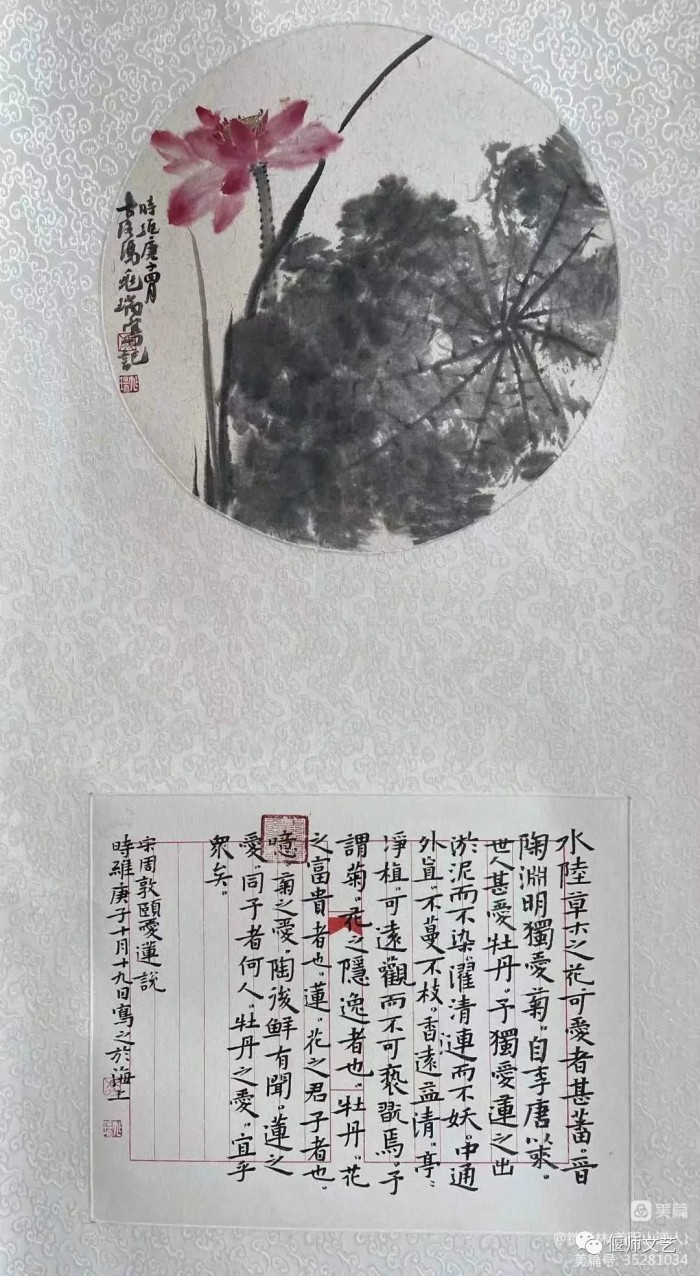 時維庚子四月
水陸草木之花。可愛者甚蕃。晉
陶淵明獨愛菊。自李唐以來。
世人甚愛牡丹。予獨愛蓮之出
淤泥而不染。濯清漣而不妖。中通
外直。不蔓不枝。香遠益清。亭〻
凈植。可遠觀而不可褻翫焉。予
謂菊。花之隱逸者也。牡丹。花
之富貴者也。蓮。花之君子者也。
噫。菊之愛。陶後鮮有聞。蓮之
愛。同予者何人。牡丹之愛。宜乎
眾矣。
宋周敦頤愛蓮說
時維庚子十月十九日寫之於海上
美篇
偃师文艺
美篇号: 35281034